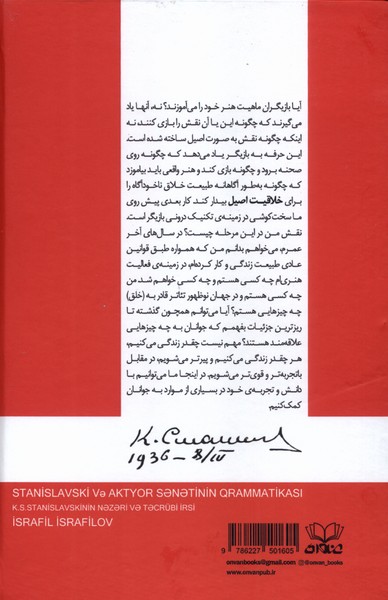 آیا بازیگران ماهیت هنر خود را می‌آموزند؟ نه، آنها یاد
می‌گیرند که چگونه این یا آن نقش را بازی کنند، نه
اینکه چگونه نقش به صورت اصیل ساخته شده است.
این حرفه به بازیگر یاد می‌دهد که چگونه روی
صحنه برود و چگونه بازی کند و هنر واقعی باید بیاموزد
که چگونه به‌طور آگاهانه طبیعت خلاق ناخودآگاه را
برای خلاقیت اصیل بیدار کند. کار بعدی پیش روی
ما سخت‌کوشی در زمینه‌ی تکنیک درونی بازیگر است.
نقش من در این مرحله چیست؟ در سال‌های آخر
عمرم، می‌خواهم بدانم من که همواره طبق قوانین
عادی طبیعت زندگی و کار کرده‌ام، در زمینه‌ی فعالیت
هنری‌ام چه کسی هستم و چه کسی خواهم شد من
چه کسی هستم و در جهان نوظهور تئاتر قادر به (خلق)
چه چیزهایی هستم؟ آیا می‌توانم همچون گذشته تا
ریزترین جزئیات بفهمم که جوانان به چه چیزهایی
علاقه‌مند هستند؟ مهم نیست چقدر زندگی می‌کنیم،
هر چقدر زندگی می‌کنیم و پیرتر می‌شویم، در مقابل
باتجربه‌تر و قوی‌تر می‌شویم. در اینجا ما می‌توانیم با
دانش و تجربه‌ی خود در بسیاری از موارد به جوانان
کمک کنیم.
1936 – 8/IV
STANİSLAVSKİ Və AKTYOR SƏNƏTİNİN QRAMMATİKASI
K.S.STANİSLAVSKİNİN NƏZƏRİ VƏ TƏCRÜBİ İRSİ
İSRAFİL İSRAFİLOV
9 786227 501605
onvanbooks@gmail.com @onvan_books
www.onvanpub.ir
عنوان